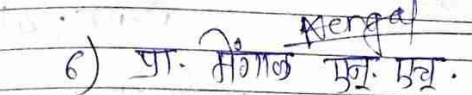 Mengal
6) प्रा. मेंगाळ एन. एच.